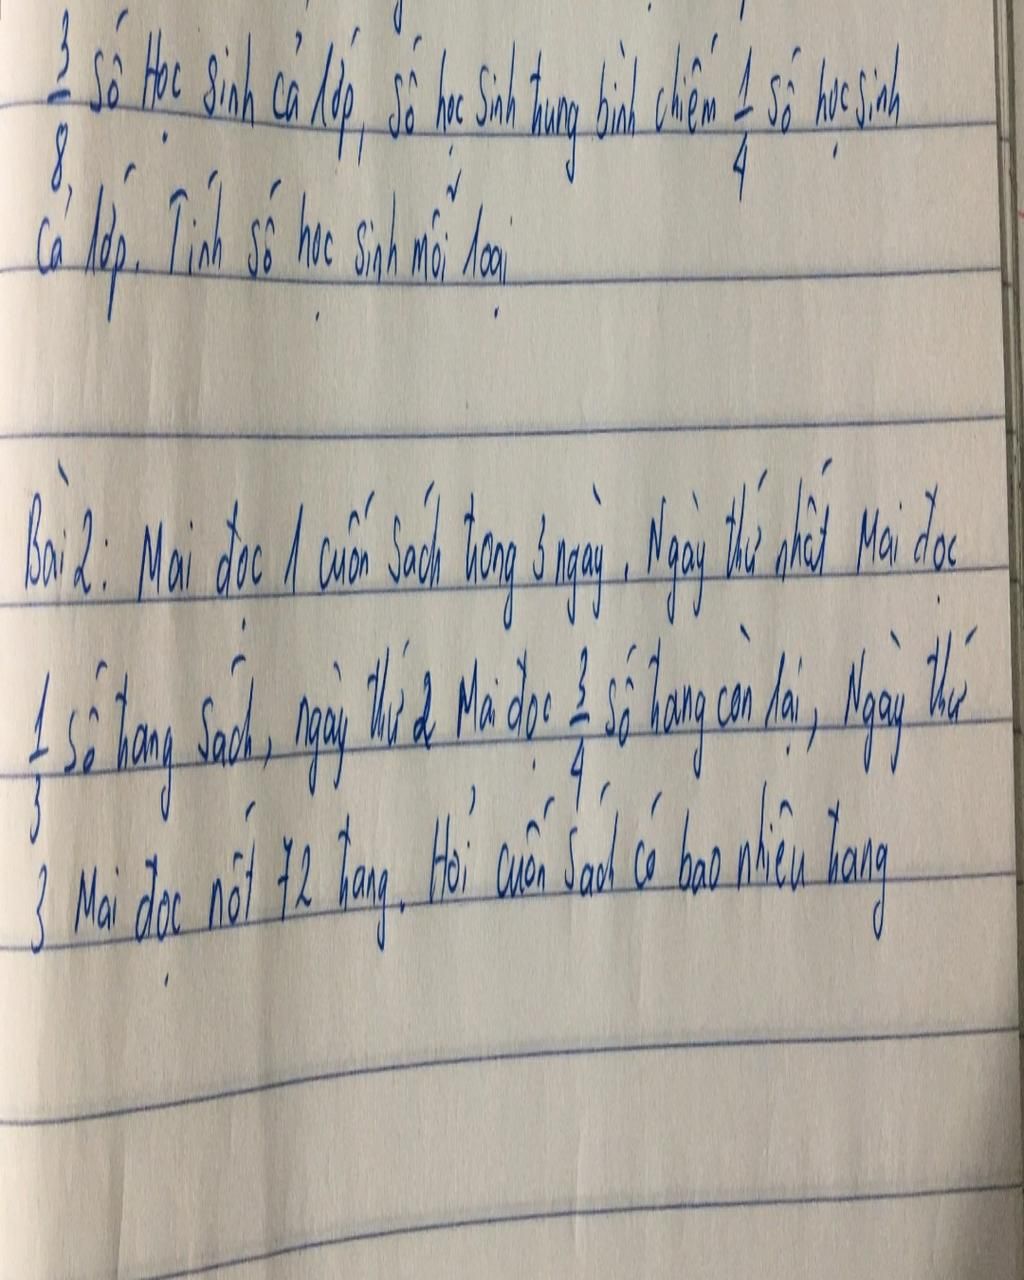 3/8 số Học sinh cả lớp, số học sinh trung bình chiếm 1/4 số học sinh
cả lớp. Tính số học sinh mỗi loại
Bài 2: Mai đọc 1 cuốn sách trong 3 ngày. Ngày thứ nhất Mai đọc
1/3 số trang sách, ngày thứ 2 Mai đọc 3/4 số trang còn lại, Ngày thứ
3 Mai đọc nốt 72 trang. Hỏi cuốn sách có bao nhiêu trang